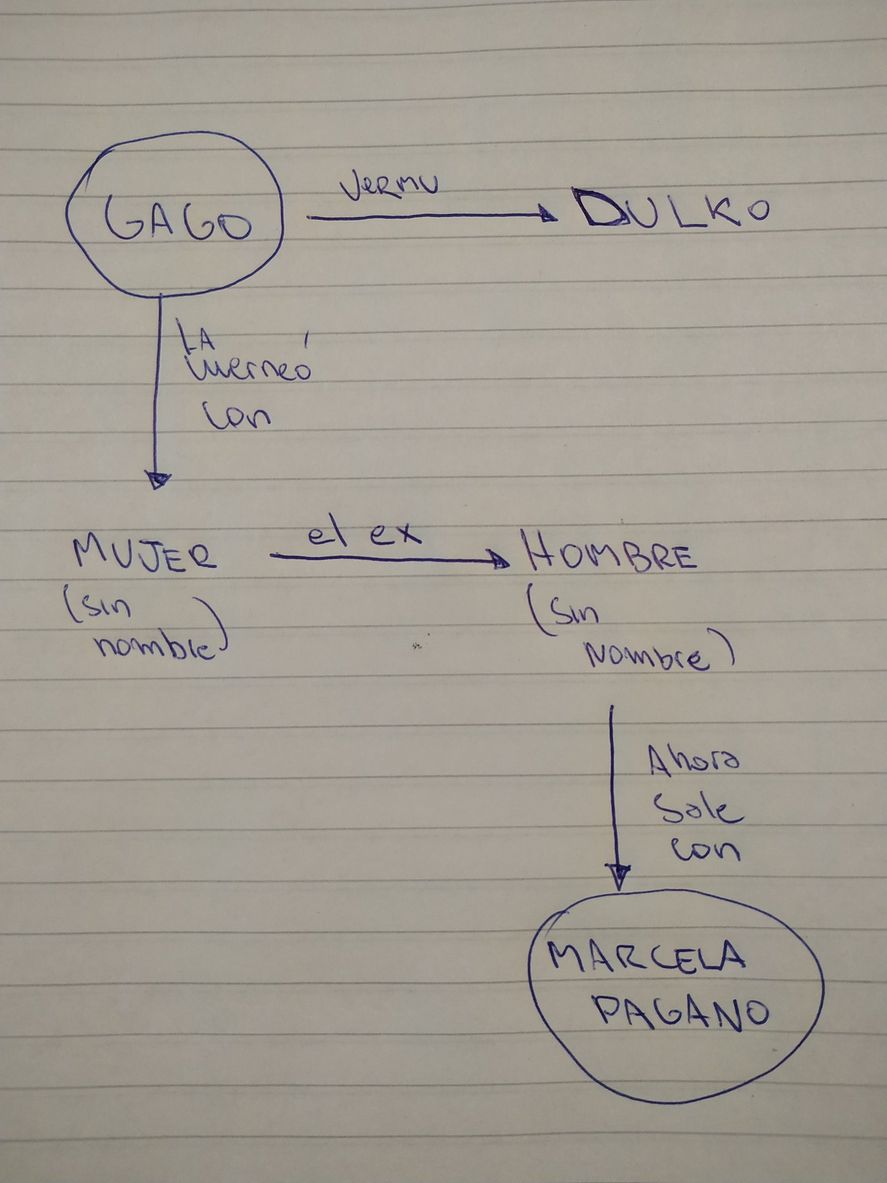 GAGO
Vermu
DULKO
LA
cuerneó
con
MUJER
(sin
nombre)
el ex
HOMBRE
(sin
Nombre)
Ahora
Sale
con
MARCELA
PAGANO